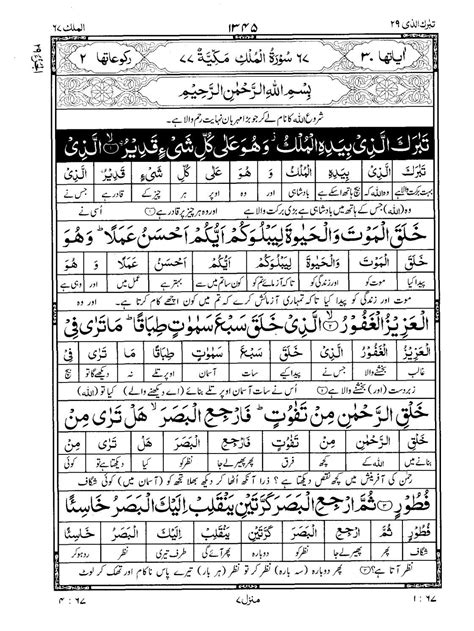 تبٰرک الذی ٢٩
١٣٤٥
الملك ٦٧
اٰیاتها ٣٠
٦٧ سُوْرَةُ الْمُلْكِ مَكِّيَّةٌ ٧٧
رکوعاتها ٢
بِسْمِ اللهِ الرَّحْمٰنِ الرَّحِيْمِ
شروع اللہ کا نام لے کر جو بڑا مہربان نہایت رحم والا ہے۔
تَبٰرَكَ الَّذِيْ بِيَدِهِ الْمُلْكُ وَهُوَ عَلٰى كُلِّ شَيْءٍ قَدِيْرُ ۙ﴿١﴾ الَّذِيْ
تَبٰرَكَ الَّذِيْ بِيَدِهِ الْمُلْكُ وَ هُوَ عَلٰى كُلِّ شَيْءٍ قَدِيْرُ الَّذِيْ
وہ (اللہ) جس کے ہاتھ میں بادشاہی ہے بڑی برکت والا ہے اور وہ ہر چیز پر قادر ہے ① اُسی نے
خَلَقَ الْمَوْتَ وَالْحَيٰوةَ لِيَبْلُوَكُمْ اَيُّكُمْ اَحْسَنُ عَمَلًا ؕ وَهُوَ
خَلَقَ الْمَوْتَ وَالْحَيٰوةَ لِيَبْلُوَكُمْ اَيُّكُمْ اَحْسَنُ عَمَلًا وَ هُوَ
پیدا کیا موت اور زندگی کو تاکہ آزمائے تم کو کون تم میں سے بہتر ہے عمل میں اور وہی ہے
موت اور زندگی کو پیدا کیا تاکہ تمہاری آزمائش کرے کہ تم میں کون اچھے کام کرتا ہے۔ اور وہ
الْعَزِيْزُ الْغَفُوْرُ ۙ﴿٢﴾ الَّذِيْ خَلَقَ سَبْعَ سَمٰوٰتٍ طِبَاقًا ؕ مَا تَرٰى فِيْ
الْعَزِيْزُ الْغَفُوْرُ الَّذِيْ خَلَقَ سَبْعَ سَمٰوٰتٍ طِبَاقًا مَا تَرٰى فِيْ
غالب بخشنے والا ہے جس نے پیدا کیے سات آسمان اوپر تلے نہ دیکھے گا تو بیچ
زبردست (اور) بخشنے والا ہے ② اُس نے سات آسمان اوپر تلے بنائے (اے دیکھنے والے) کیا تو (اللہ)
خَلْقِ الرَّحْمٰنِ مِنْ تَفٰوُتٍ ؕ فَارْجِعِ الْبَصَرَ ۙ هَلْ تَرٰى مِنْ
خَلْقِ الرَّحْمٰنِ مِنْ تَفٰوُتٍ فَارْجِعِ الْبَصَرَ هَلْ تَرٰى مِنْ
بنانے میں اللہ کے کچھ فرق پھر پھیر لے جا نظر کو کیا دیکھتا ہے تو کوئی
رحمٰن کی آفرینش میں کچھ نقص دیکھتا ہے؟ ذرا آنکھ اُٹھا کر دیکھ بھلا تجھ کو (آسمان میں) کوئی شگاف
فُطُوْرٍ ﴿٣﴾ ثُمَّ ارْجِعِ الْبَصَرَ كَرَّتَيْنِ يَنْقَلِبْ اِلَيْكَ الْبَصَرُ خَاسِئًا
فُطُوْرٍ ثُمَّ ارْجِعِ الْبَصَرَ كَرَّتَيْنِ يَنْقَلِبْ اِلَيْكَ الْبَصَرُ خَاسِئًا
شگاف پھر پھیر لے جا نظر کو دوبارہ پھر آئے گی طرف تیری نظر رد ہو کر
نظر آتا ہے؟ ③ پھر دوبارہ (سہ بارہ) نظر کر تو نظر (ہر بار) تیرے پاس ناکام اور تھک کر لوٹ
١ : ٦٧
منزل ٧
٤ : ٦٧